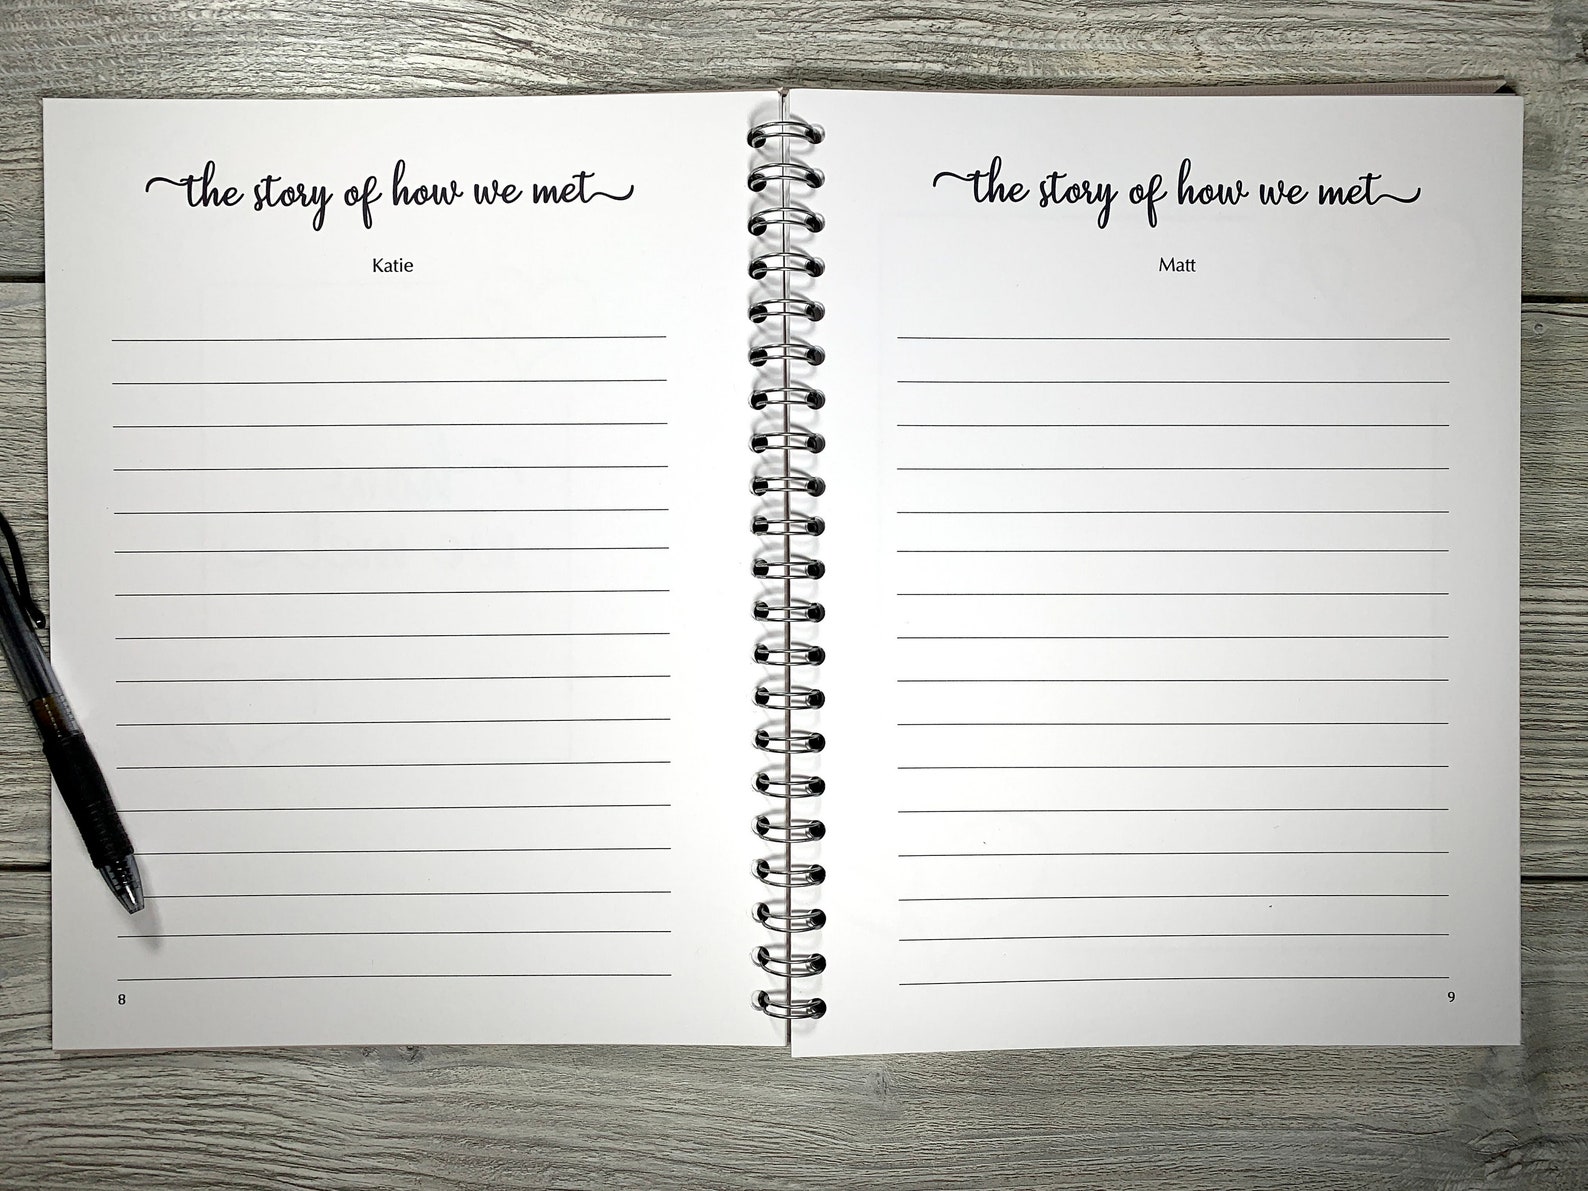 the story of how we met
Katie
8
the story of how we met
Matt
9